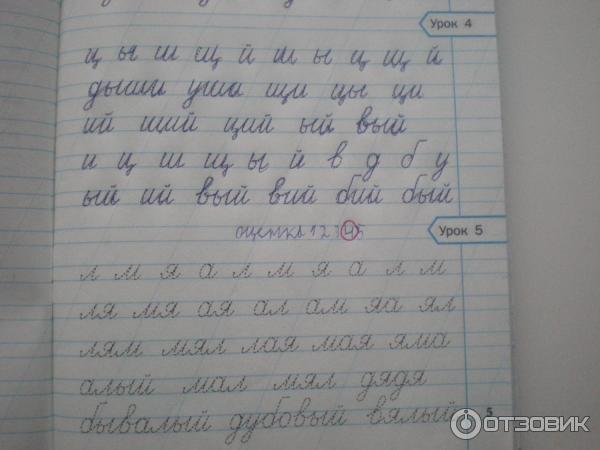 Урок 4
ц ы ш щ й ш ы ц щ й
дыши уша щи цы ци
ий ший ций ый вый
и ц ш щ ы й в д б у
ый ий вый вий бий бый
оценка 1 2 3 4 5
Урок 5
л м я а л м я а л м
ля мя ая ал ам яа ял
лям мял лая мая яма
алый мал мял дядя
бывалый дубовый вялый
5
ОТЗОВИК